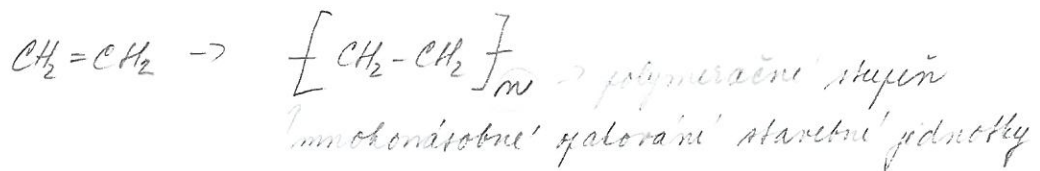 CH₂=CH₂ -> [CH₂-CH₂]n -> polymerační stupeň
mnohonásobné opakování stavební jednotky